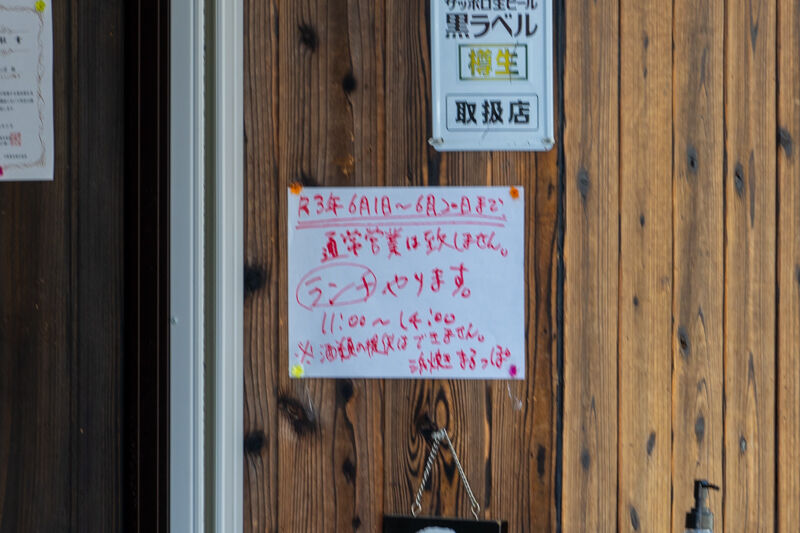 サッポロ生ビール
黒ラベル
樽生
取扱店
R3年6月1日～6月20日まで
通常営業は致しません。
ランチやります。
11:00～14:00
※酒類の提供はできません。
浜焼きまるっぽ。